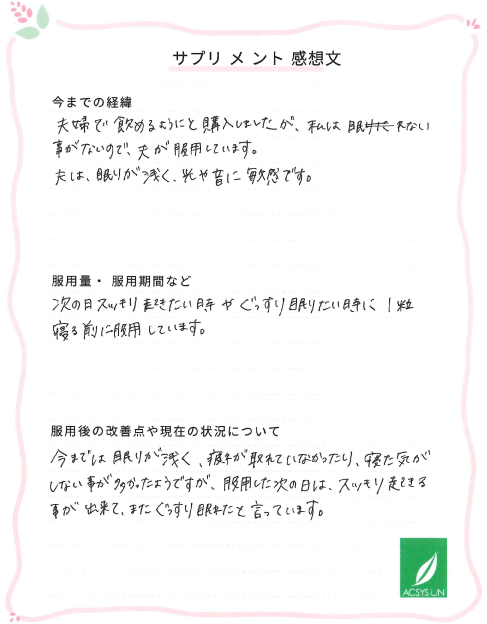 サプリメント 感想文
今までの経緯
夫婦で飲めるようにと購入しましたが、私は眠れない
事がないので、夫が服用しています。
夫は、眠りが浅く、光や音に敏感です。
服用量・服用期間など
次の日スッキリ起きたい時やぐっすり眠りたい時に1粒
寝る前に服用しています。
服用後の改善点や現在の状況について
今までは眠りが浅く、疲れが取れていなかったり、寝た気が
しない事が多かったようですが、服用した次の日は、スッキリ起きる
事が出来て、またぐっすり眠れたと言っています。
ACSYSUN